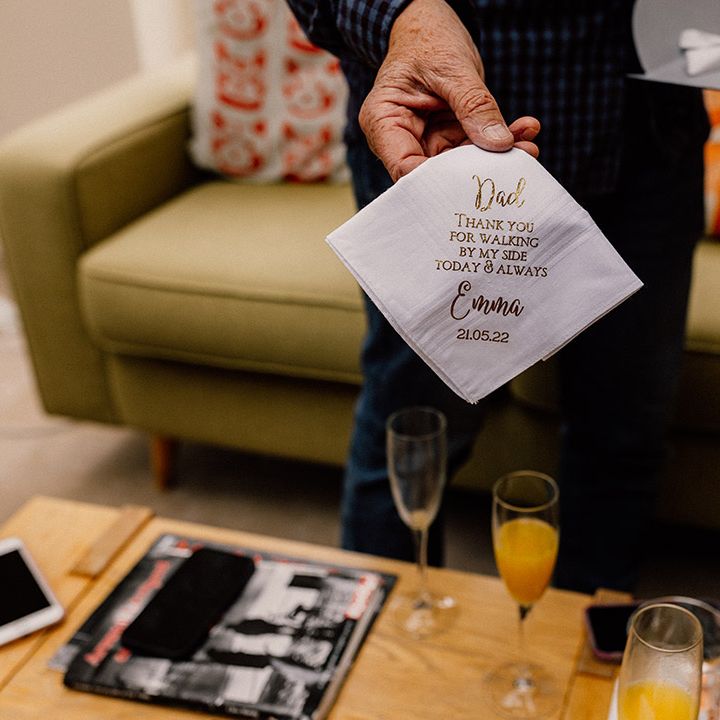 Dad
THANK YOU
FOR WALKING
BY MY SIDE
TODAY & ALWAYS
Emma
21.05.22